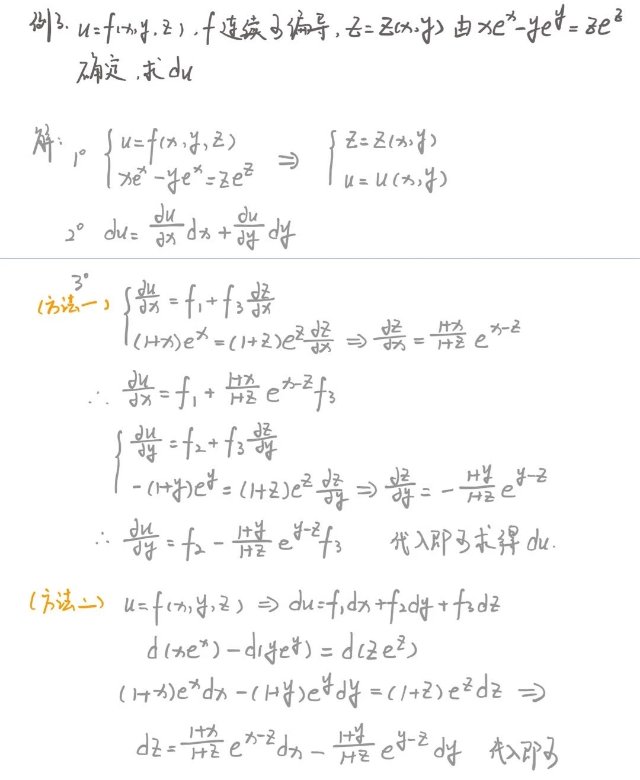 例3. u=f(x,y,z), f连续可偏导, z=z(x,y) 由 xe^x-ye^y=ze^z
确定, 求du
解: 1° { u=f(x,y,z) ⇒ { z=z(x,y)
xe^x-ye^x=ze^z u=u(x,y)
2° du= ∂u/∂x dx + ∂u/∂y dy
3°
(方法一) { ∂u/∂x = f₁+f₃ ∂z/∂x
(1+x)e^x=(1+z)e^z ∂z/∂x ⇒ ∂z/∂x = (1+x)/(1+z) e^(x-z)
∴ ∂u/∂x = f₁ + (1+x)/(1+z) e^(x-z) f₃
{ ∂u/∂y = f₂+f₃ ∂z/∂y
-(1+y)e^y=(1+z)e^z ∂z/∂y ⇒ ∂z/∂y = - (1+y)/(1+z) e^(y-z)
∴ ∂u/∂y = f₂ - (1+y)/(1+z) e^(y-z) f₃ 代入即可求得 du.
(方法二) u=f(x,y,z) ⇒ du=f₁dx+f₂dy+f₃dz
d(xe^x)-d(ye^y)=d(ze^z)
(1+x)e^x dx-(1+y)e^y dy=(1+z)e^z dz ⇒
dz= (1+x)/(1+z) e^(x-z) dx - (1+y)/(1+z) e^(y-z) dy 代入即可